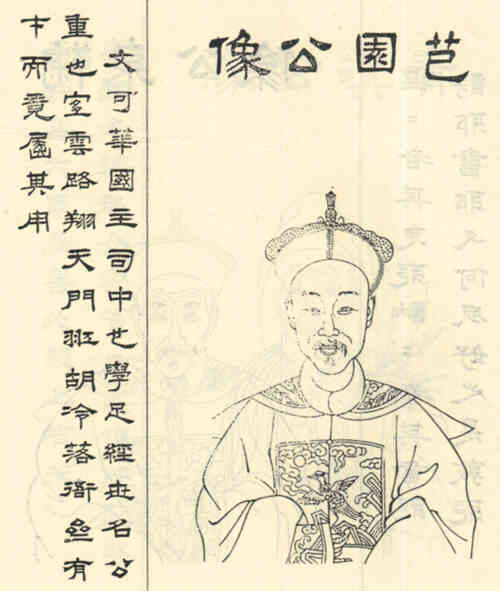 芑園公像
文可華國主司中也學足經世名公
重也宜雲路翔天門羾胡冷落衙有
才而竟屈其用